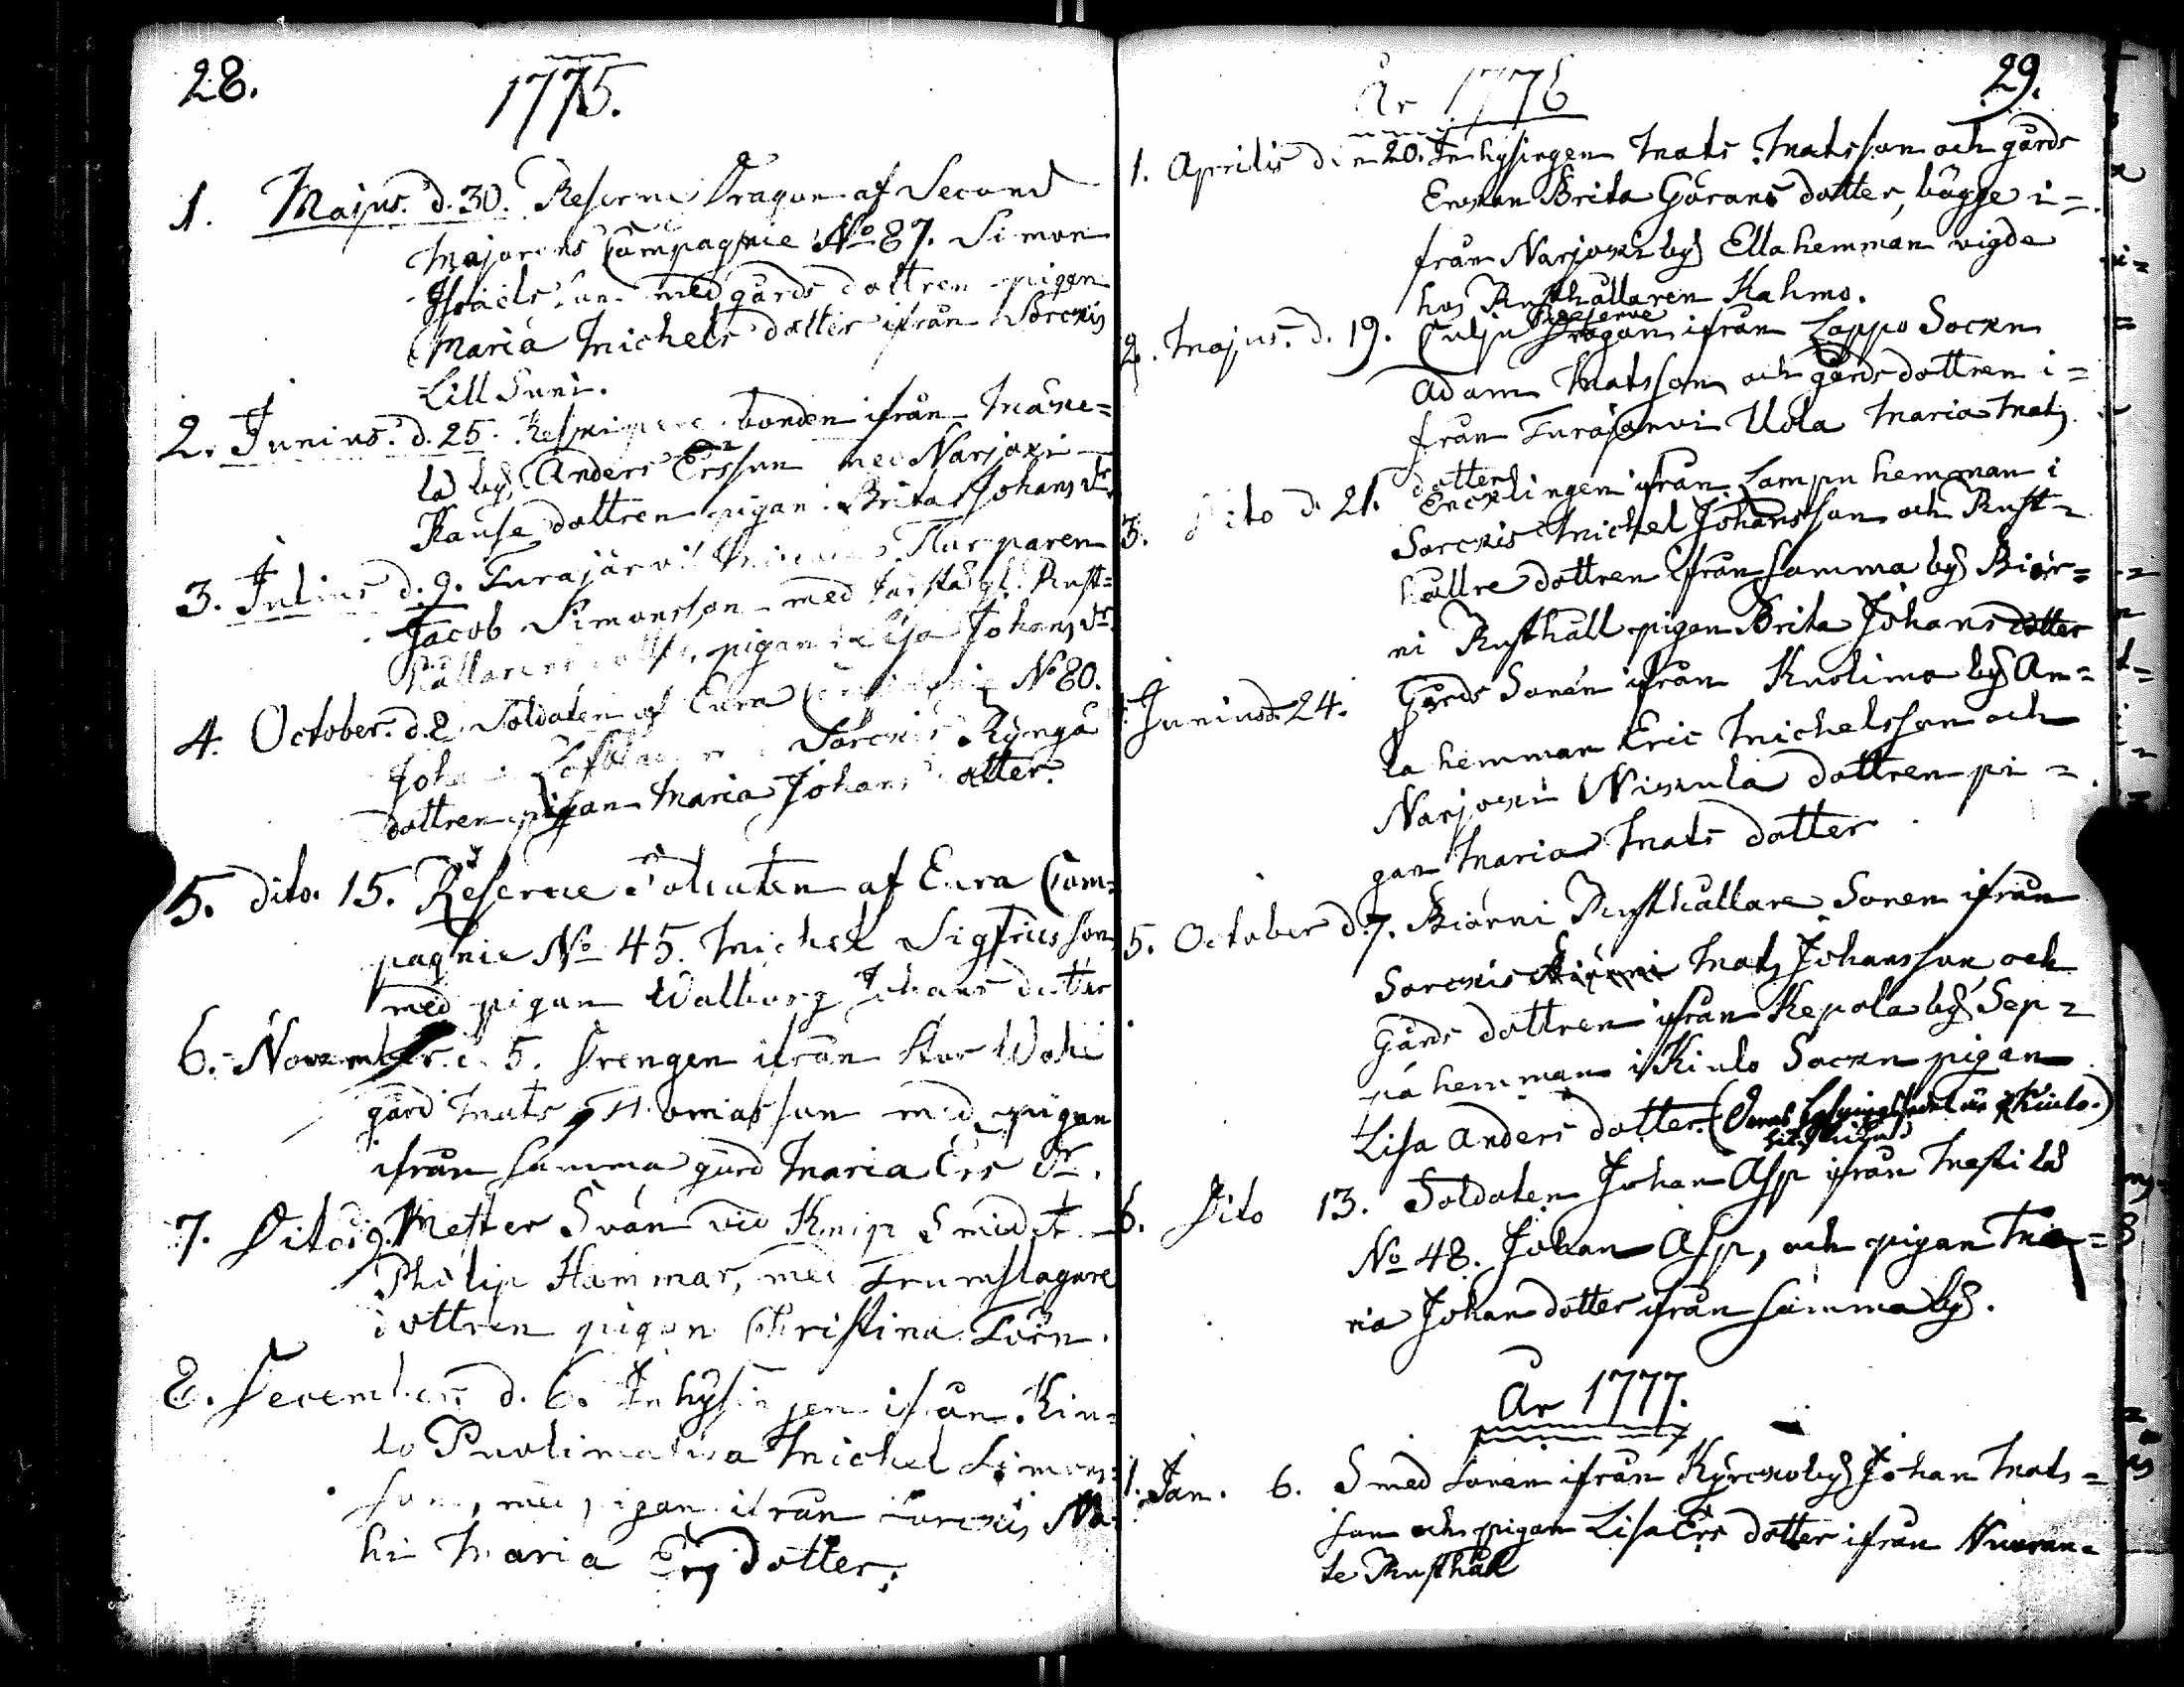 28.
1775.
1. Majus. d. 30. Reserve Dragon af Second
Majorens Compagnie No 87. Simon
Israels Son med gårds dottren pigan
Maria Michels dotter ifrån Sorckis
Lill Suni.
2. Junius. d. 25. bonden ifrån
la by Anders Ersson med Narjoxi
Kause dottren pigan Brita Johans dr.
3. Julius d. 9. Turajärvi Torparen
Jacob Simonsson med Rust=
hållarens pigan Lisa Johans dr.
4. October. d. 8. Soldaten af Eura Compagnie No 80.
Johan Sorckis Kyngä
dottren pigan Maria Johans dotter.
5. dito. 15. Reserve Soldaten af Eura Com=
pagnie No 45. Michel Sigfridsson
med pigan Walborg Johans dotter
6. November. d. 5. Drengen ifrån Stor Wahi
gård Mats Thomasson med pigan
ifrån samma gård Maria Ers dr.
7. Dito d. 9. Mester Sván vid Knip Smidet
Philip Hammar, med Trumslagare
dottren pigan Christina Törn.
8. December d. 6. Inhysingen ifrån Kiu=
lo Puolimatka Michel Simons=
son, med pigan ifrån Sorckis Ma=
hi Maria Ers dotter.
29.
År 1776
1. Aprilis den 20. Inhysingen Mats Matsson och gårds
Enckan Brita Görans dotter, bägge i=
från Narjoxi by Ella hemman vigde
hos Rusthållaren Kahmo.
2. Majus. d. 19. Reserve
Dragon ifrån Lappo Sockn
Adam Matsson och gårds dottren i=
från Turajervi Uola Maria Mats
dotter
3. Dito d. 21. Encklingen ifrån Lampu hemman i
Sorckis Michel Johansson och Rust=
hållre dottren ifrån samma by Biör=
ni Rusthåll pigan Brita Johans dotter
Junius d. 24. Gårds Sonen ifrån Kuolimo by An=
la hemman Eric Michelsson och
Narjoxi Niskula dottren pi=
gan Maria Mats dotter
5. October d. 7. Biörni Rusthållare Sonen ifrån
Sorckis Mats Johansson och
Gårds dottren ifrån Kepola by Sep=
pä hemman i Kiulo Sockn pigan
Lisa Anders dotter. Kiulo.)
6. Dito 13. Soldaten Johan Asp ifrån Mestilä
No 48. Johan Asp, och pigan Ma=
ria Johans dotter ifrån samma by.
År 1777.
1. Jan. 6. Smed Sonen ifrån Kyrckoby Johan Mats=
son och pigan Lisa Ers dotter ifrån Nuoran=
te Rusthåll